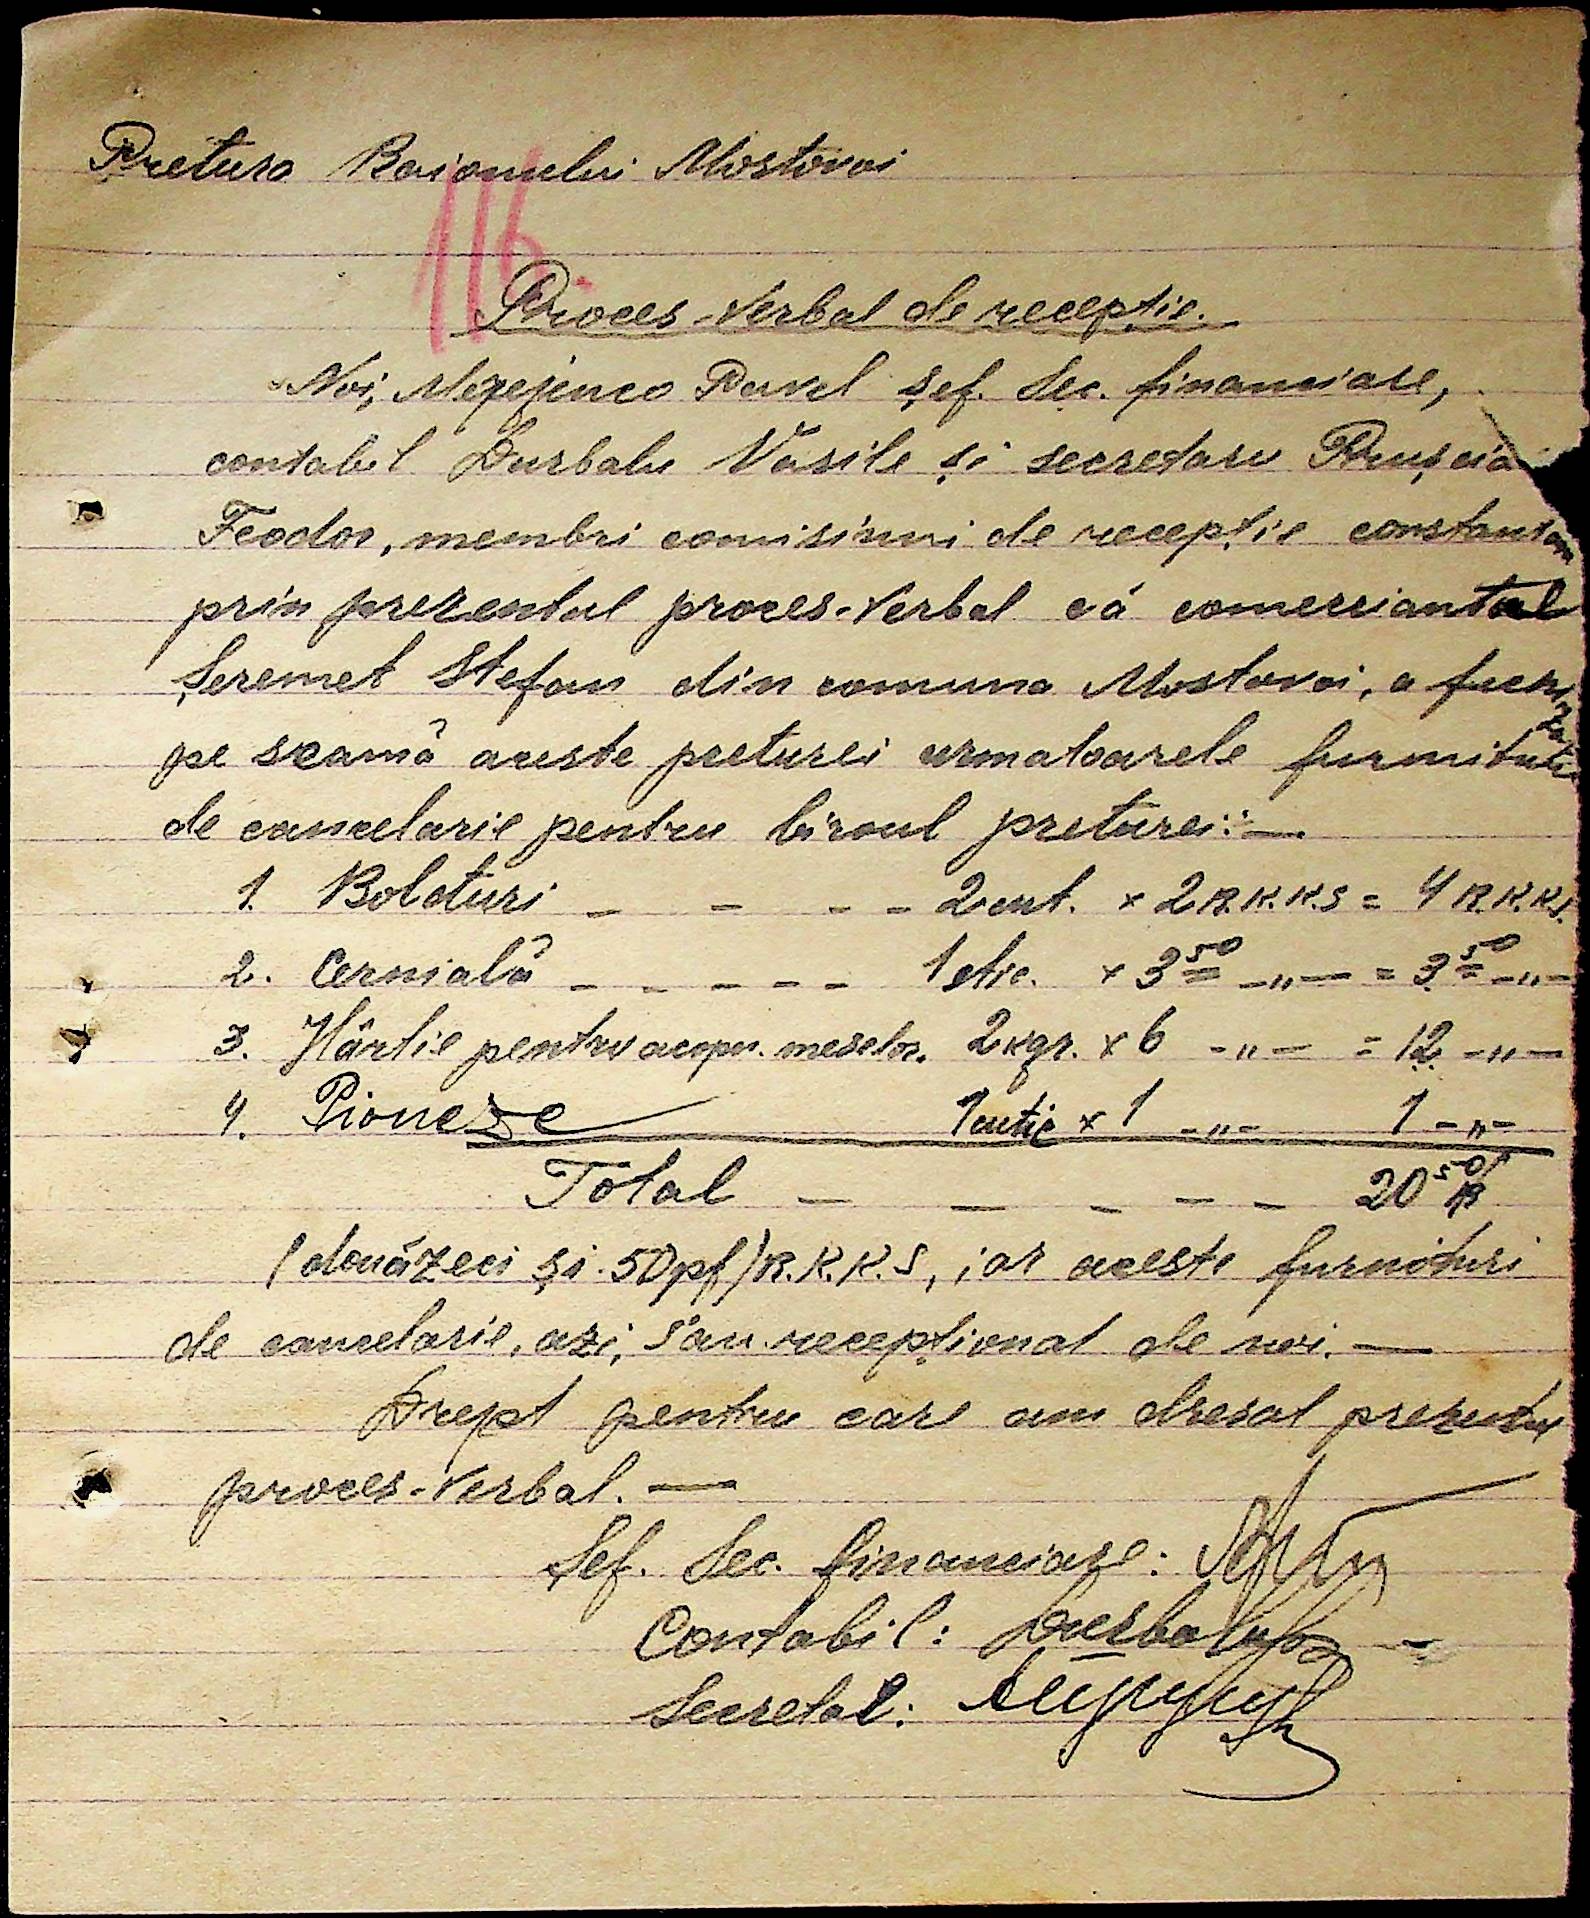 Pretura Raionului Mostovoi
116.
Proces-Verbal de recepție.
Noi, Mezejinco Pavel șef. Sec. financiare,
contabil Durbalu Vasile și secretaru
Feodor, membri comisiuni de recepție constantam
prin prezentul proces-verbal că comerciantul
Șeremet Stefan din comuna Mostovoi, a furnizat
pe seamă aceste preturei urmatoarele furnituri
de cancelarie pentru biroul preturei:—
1. Bolduri _ _ _ _ 2 cut. x 2 R.K.K.S = 4 R.K.K.S.
2. Cernială _ _ _ _ _ 1 stic. x 3 50 -„- = 3 50 -„-
3. Hârtie pentru acoper. meselor. 2 kgr. x 6 -„- = 12 -„-
4. Pioneze 1 cutie x 1 -„- 1 -„-
Total — — — — — 20 50 R
(douăzeci și 50 pf) R.K.K.S, iar aceste furnituri
de cancelarie, azi, s'au recepționat de noi.—
Drept pentru care am dresat prezentul
proces-verbal.—
Șef. Sec. financiare:
Contabil: Durbalu
Secretar: